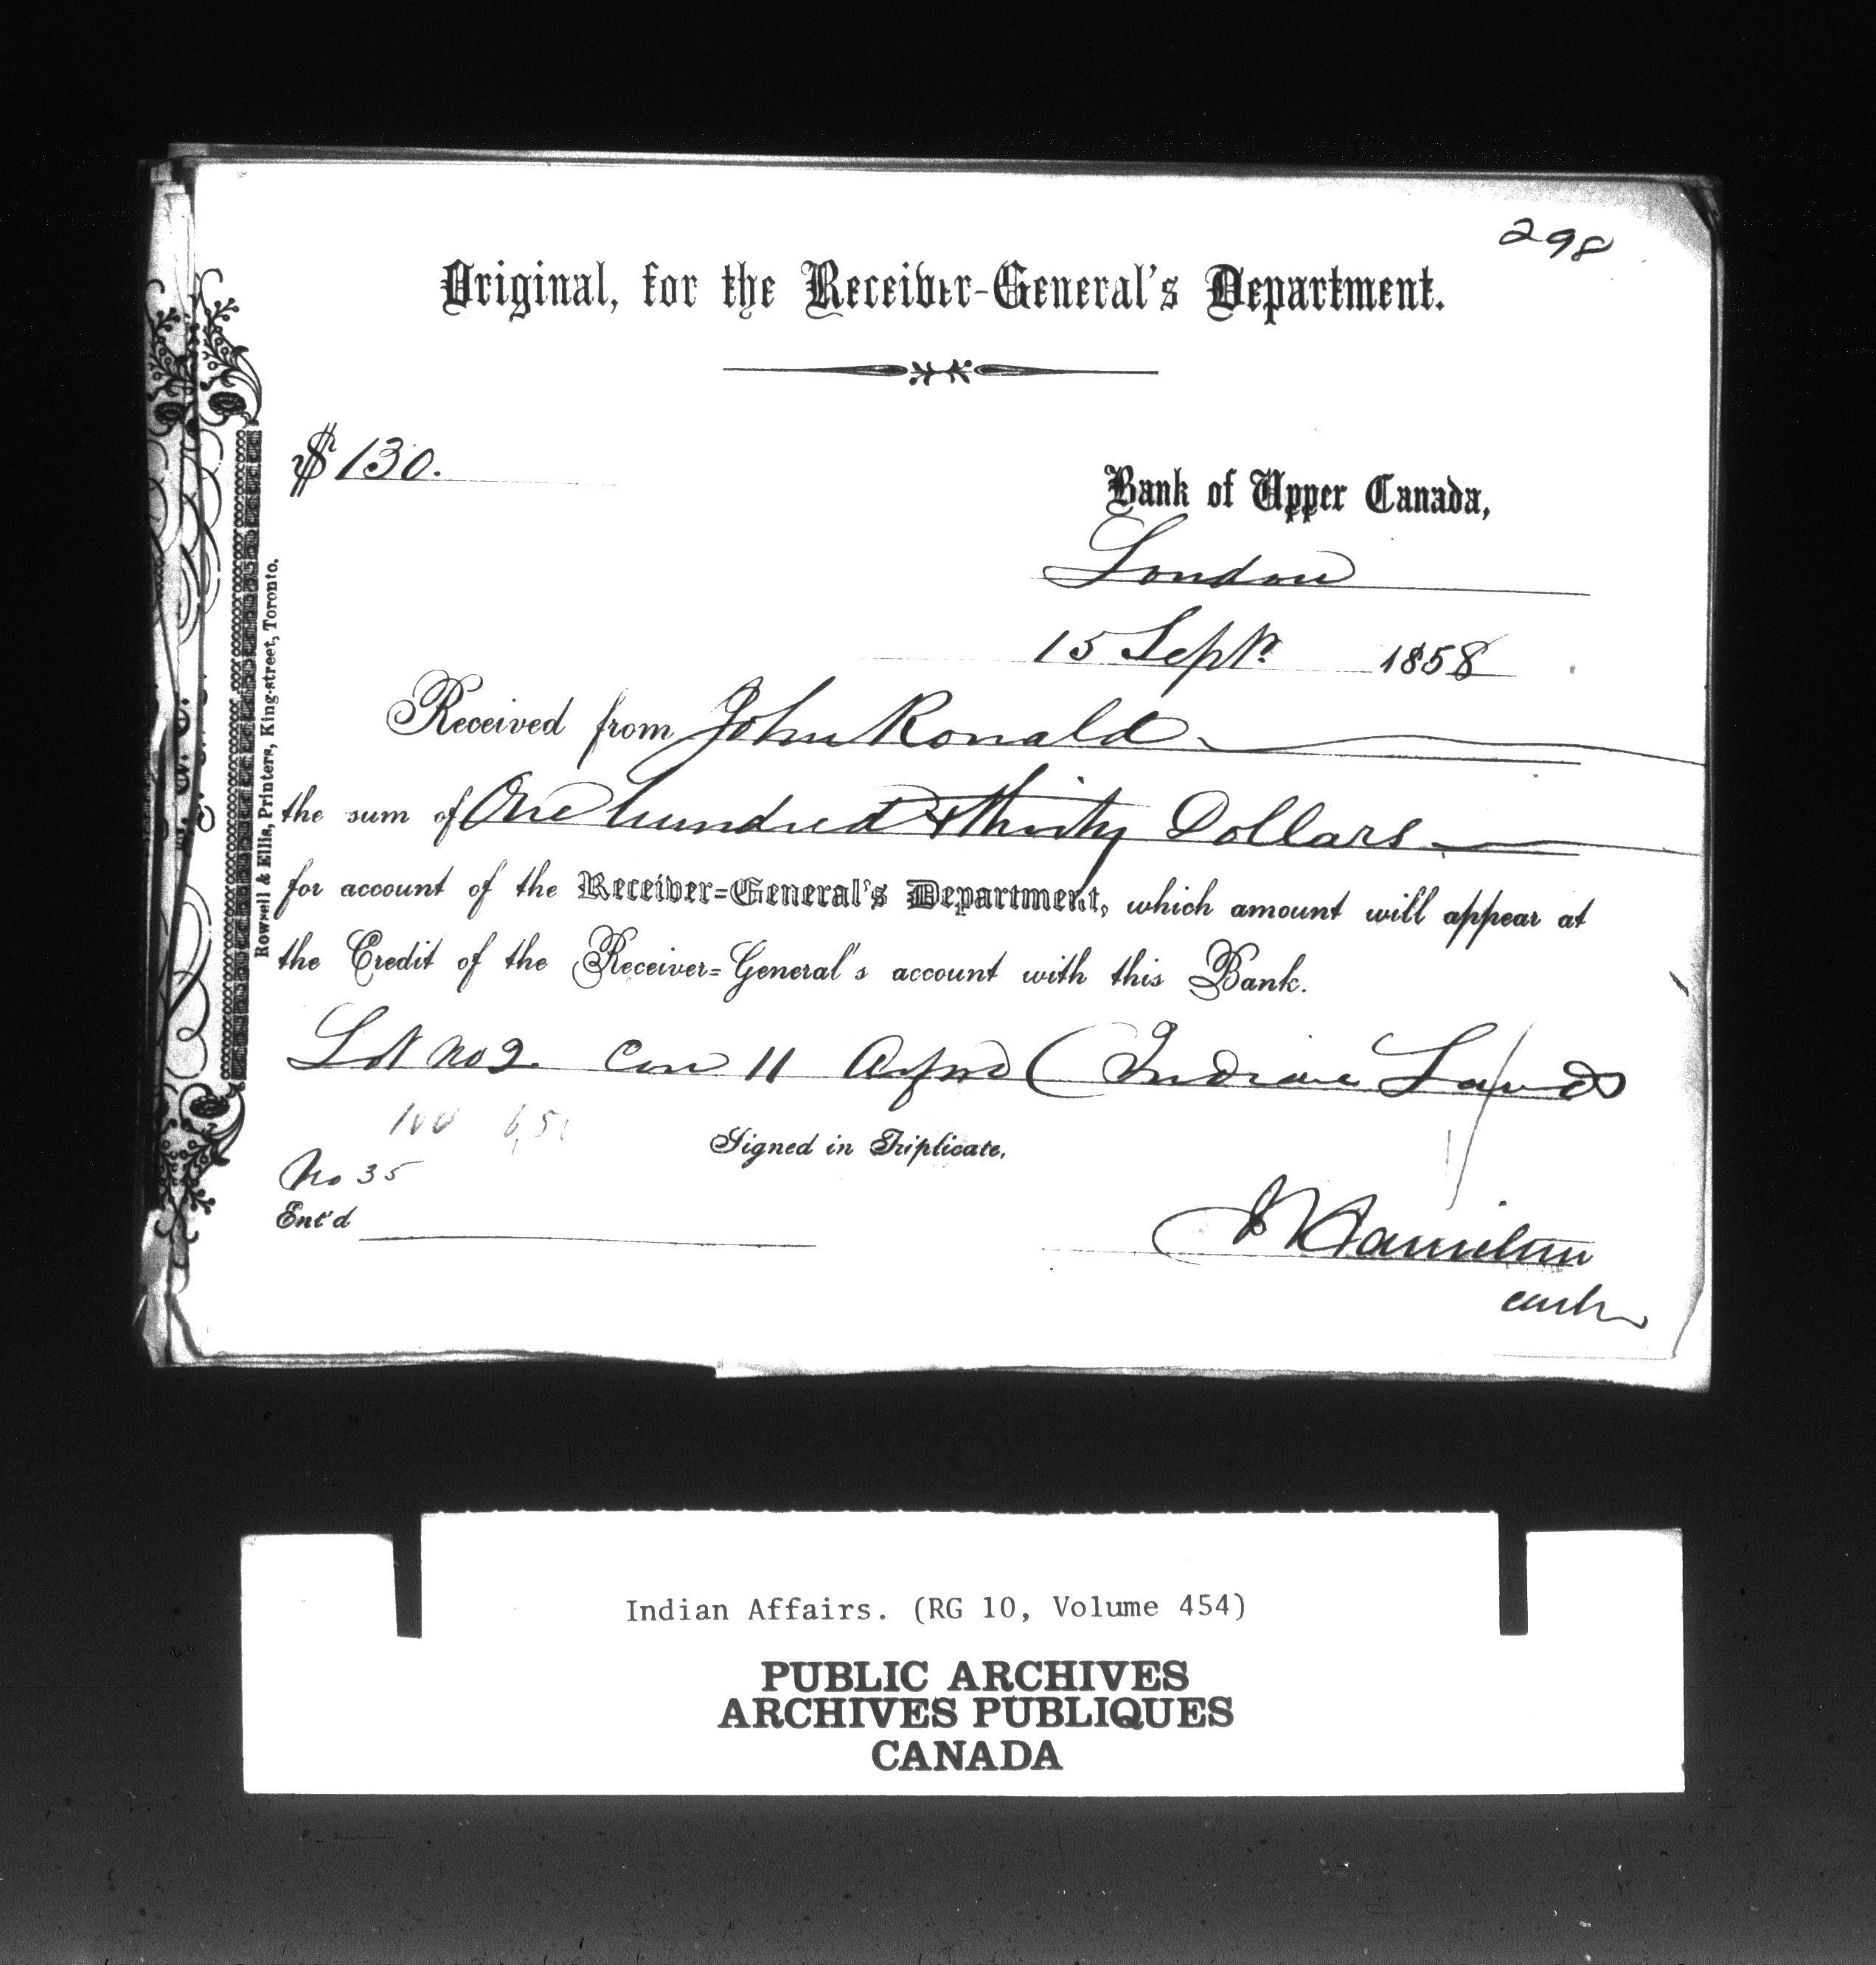 298
Original, for the Receiver-General's Department.
$ 130.
Bank of Upper Canada,
London
15 Septr. 1858
Received from John Ronald
the sum of One hundred & thirty Dollars
for account of the Receiver=General's Department, which amount will appear at
the Credit of the Receiver=General's account with this Bank.
Lot no 2 Con 11 (Indian Lands
100
Signed in Triplicate,
No 35
Ent'd
Hamilton
Rowsell & Ellis, Printers, King-street, Toronto.
Indian Affairs. (RG 10, Volume 454)
PUBLIC ARCHIVES
ARCHIVES PUBLIQUES
CANADA